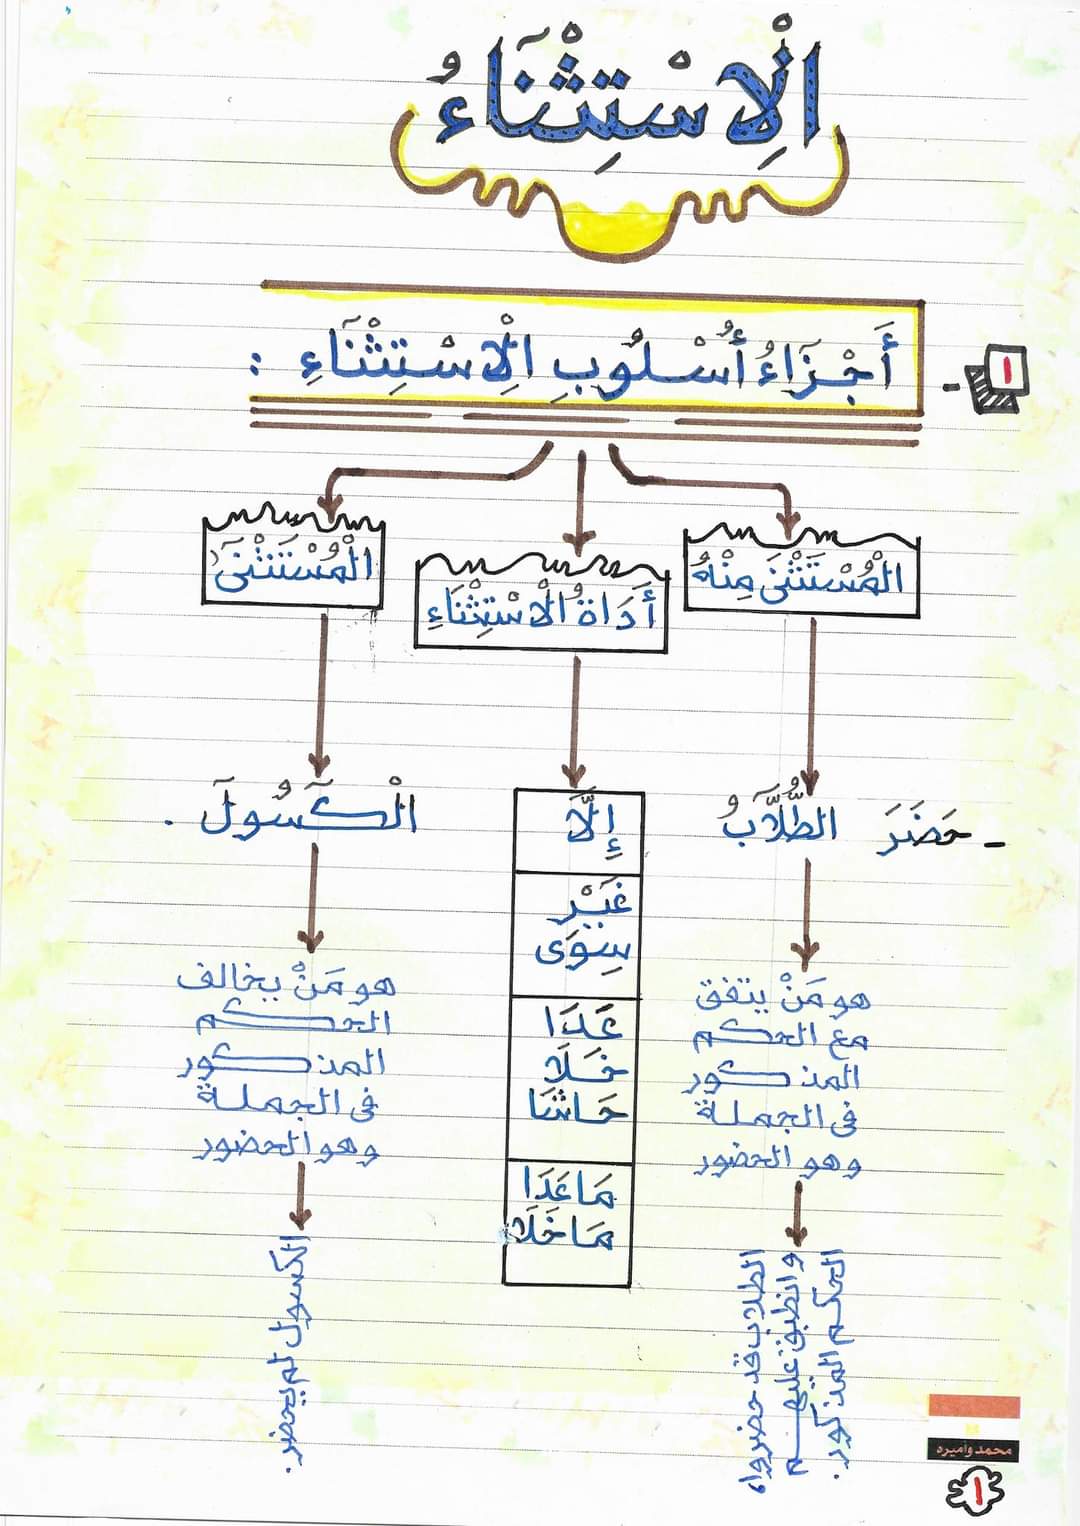 الْاِسْتِثْنَاءُ
١ - أَجْزَاءُ أُسْلُوبِ الْاِسْتِثْنَاءِ :
الْمُسْتَثْنَى مِنْهُ
أَدَاةُ الْاسْتِثْنَاءِ
الْمُسْتَثْنَى
- حَضَرَ الطُّلَّابُ
إِلَّا
غَيْر
سِوَى
عَدَا
خَلَا
حَاشَا
مَا عَدَا
مَا خَلَا
الْكَسُولَ .
هو مَنْ يتفق
مع الحكم
المذكور
فى الجملة
وهو الحضور
الطلاب قد حضروا،
وانطبق عليهم
الحكم المذكور.
هو مَنْ يخالف
الحكم
المذكور
فى الجملة
وهو الحضور
الكسول لم يحضر.
محمد وأميره
١